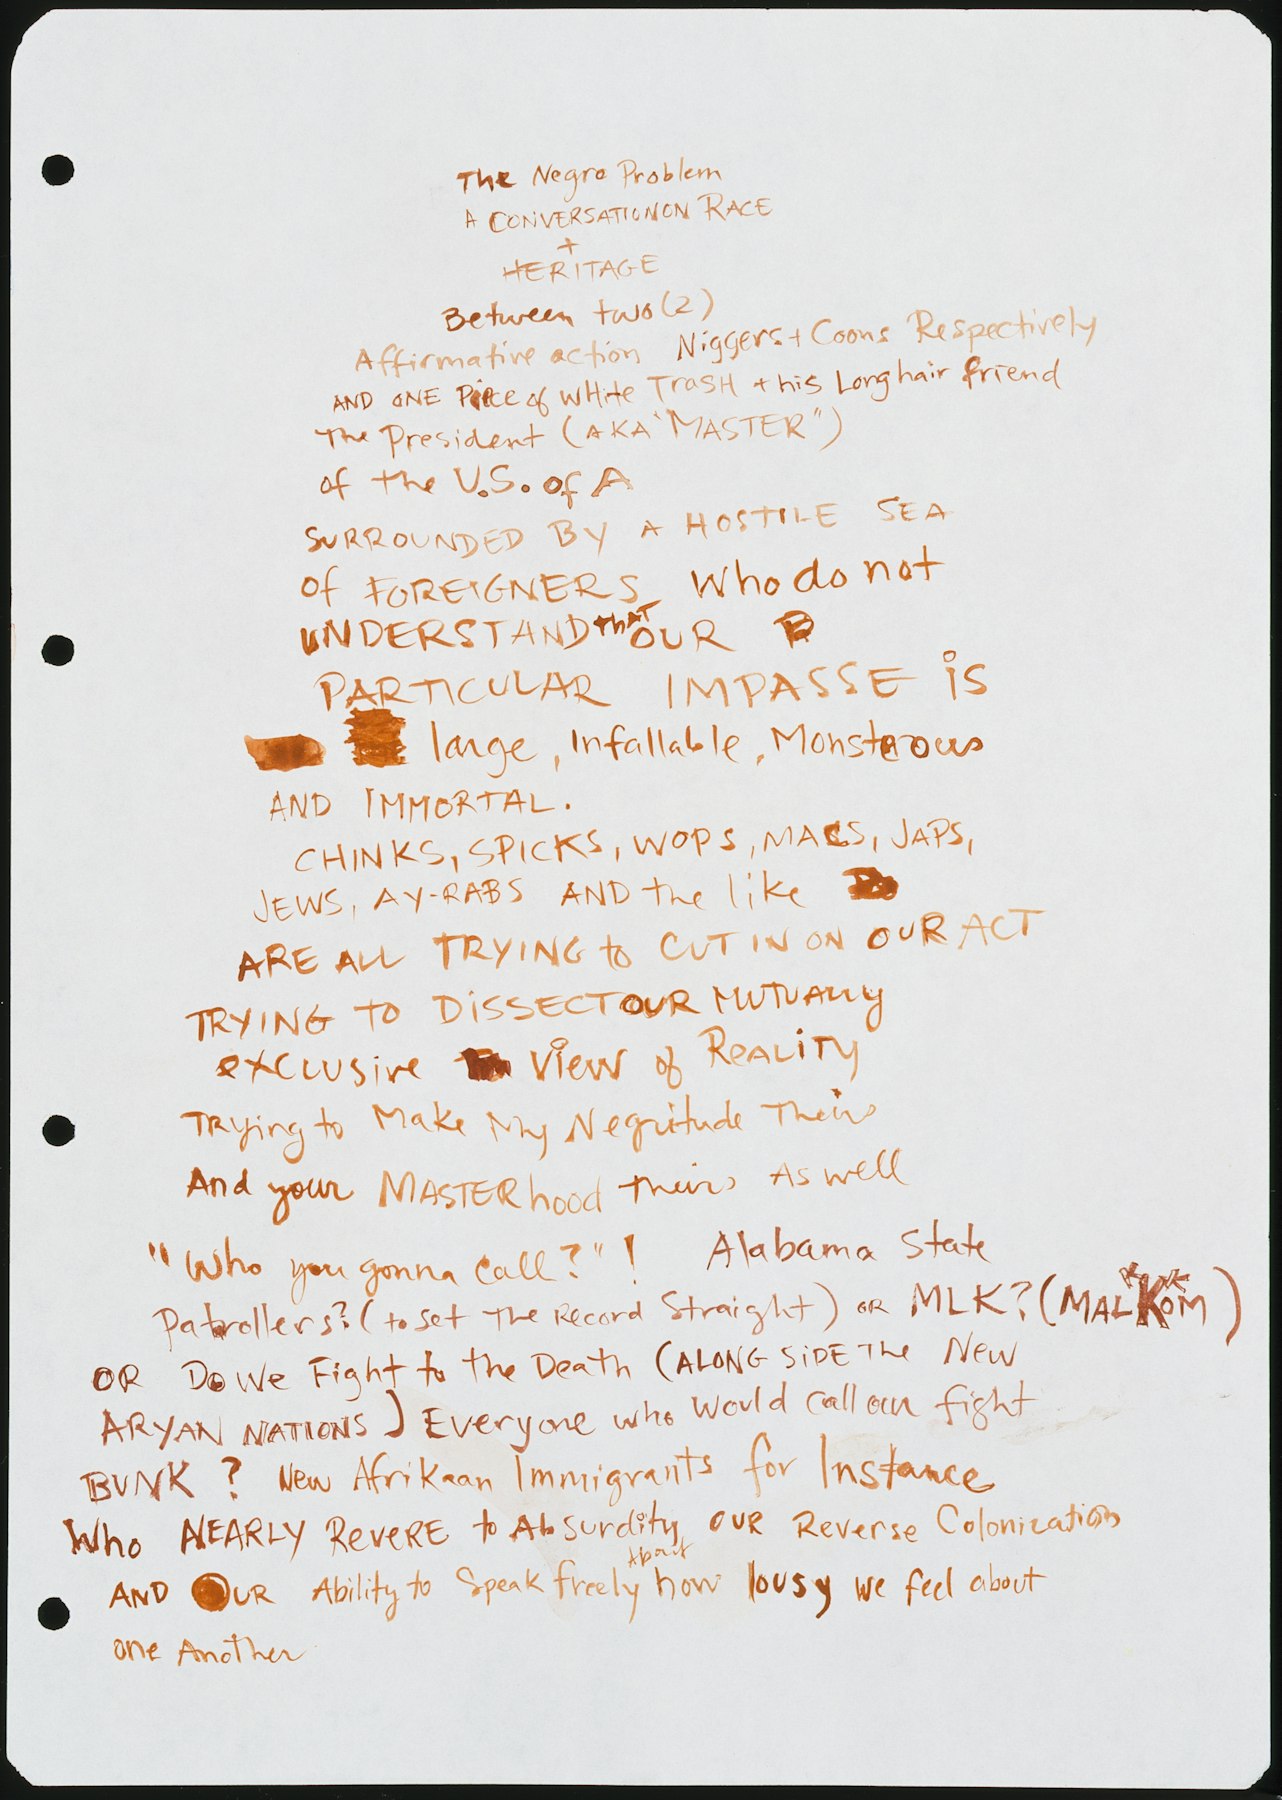 The Negro Problem
A CONVERSATION ON RACE
+
HERITAGE
Between two (2)
Affirmative action Niggers + Coons Respectively
AND ONE Piece of White TRASH + his Long hair friend
The President (AKA "MASTER")
of the U.S. of A
SURROUNDED BY A HOSTILE SEA
of FOREIGNERS Who do not
UNDERSTAND that OUR
PARTICULAR IMPASSE is
large, Infallable, Monsterous
AND IMMORTAL.
CHINKS, SPICKS, WOPS, MACS, JAPS,
JEWS, AY-RABS AND the like
ARE ALL TRYING to CUT IN ON OUR ACT
TRYING TO DISSECT OUR MUTUALLY
exclusive View of REALITY
Trying to Make My Negritude Theirs
And your MASTERhood Theirs As well
"Who you gonna Call?"! Alabama State
Patrollers? (to set The Record Straight) OR MLK? (MALKOM)
OR Do We Fight to the Death (ALONG SIDE The New
ARYAN NATIONS) Everyone who would call our fight
BUNK? New Afrikaan Immigrants for Instance
Who NEARLY ReveRE to Absurdity OUR Reverse Colonization
AND OUR Ability to Speak freely About how lousy we feel about
one Another